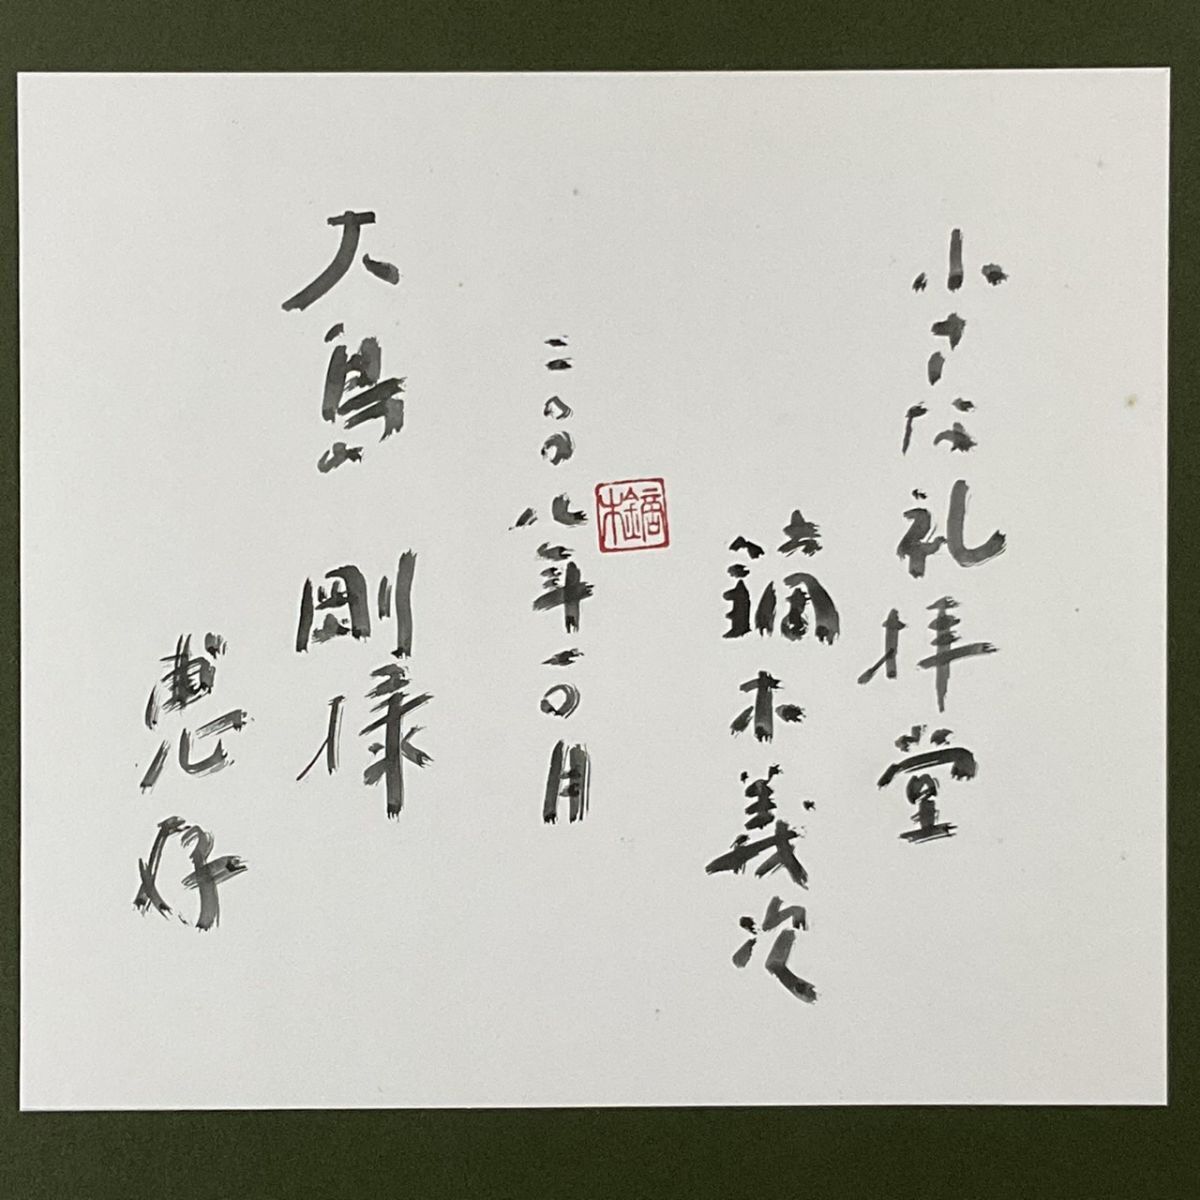 小さな礼拝堂
鏑木義次
鏑木
二〇〇八年一〇月
大島剛様
恵存